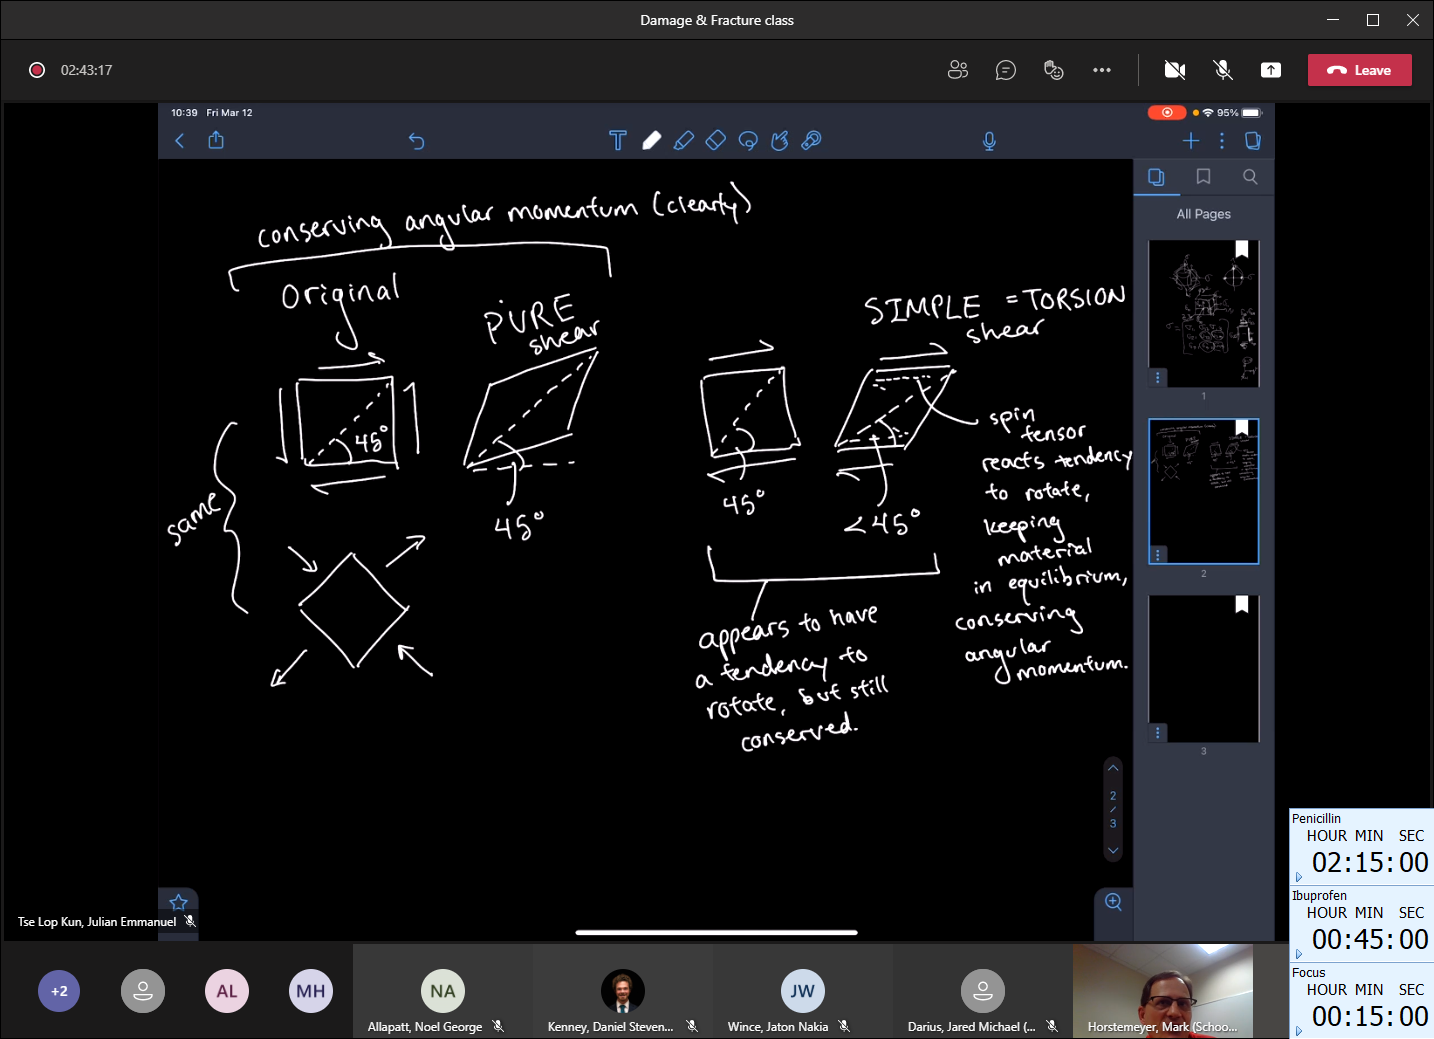 Damage & Fracture class
02:43:17
Leave
10:39 Fri Mar 12
95%
conserving angular momentum (clearly)
Original
PURE
shear
SIMPLE = TORSION
shear
45°
45°
same
45°
<45°
spin
tensor
reacts tendency
to rotate,
keeping
material
in equilibrium,
conserving
angular
momentum.
appears to have
a tendency to
rotate, but still
conserved.
All Pages
1
2
3
2
/
3
Tse Lop Kun, Julian Emmanuel
+2
AL
MH
NA
Allapatt, Noel George
Kenney, Daniel Steven...
JW
Wince, Jaton Nakia
Darius, Jared Michael (...
Horstemeyer, Mark (Schoo...
Penicillin
HOUR MIN SEC
02:15:00
Ibuprofen
HOUR MIN SEC
00:45:00
Focus
HOUR MIN SEC
00:15:00